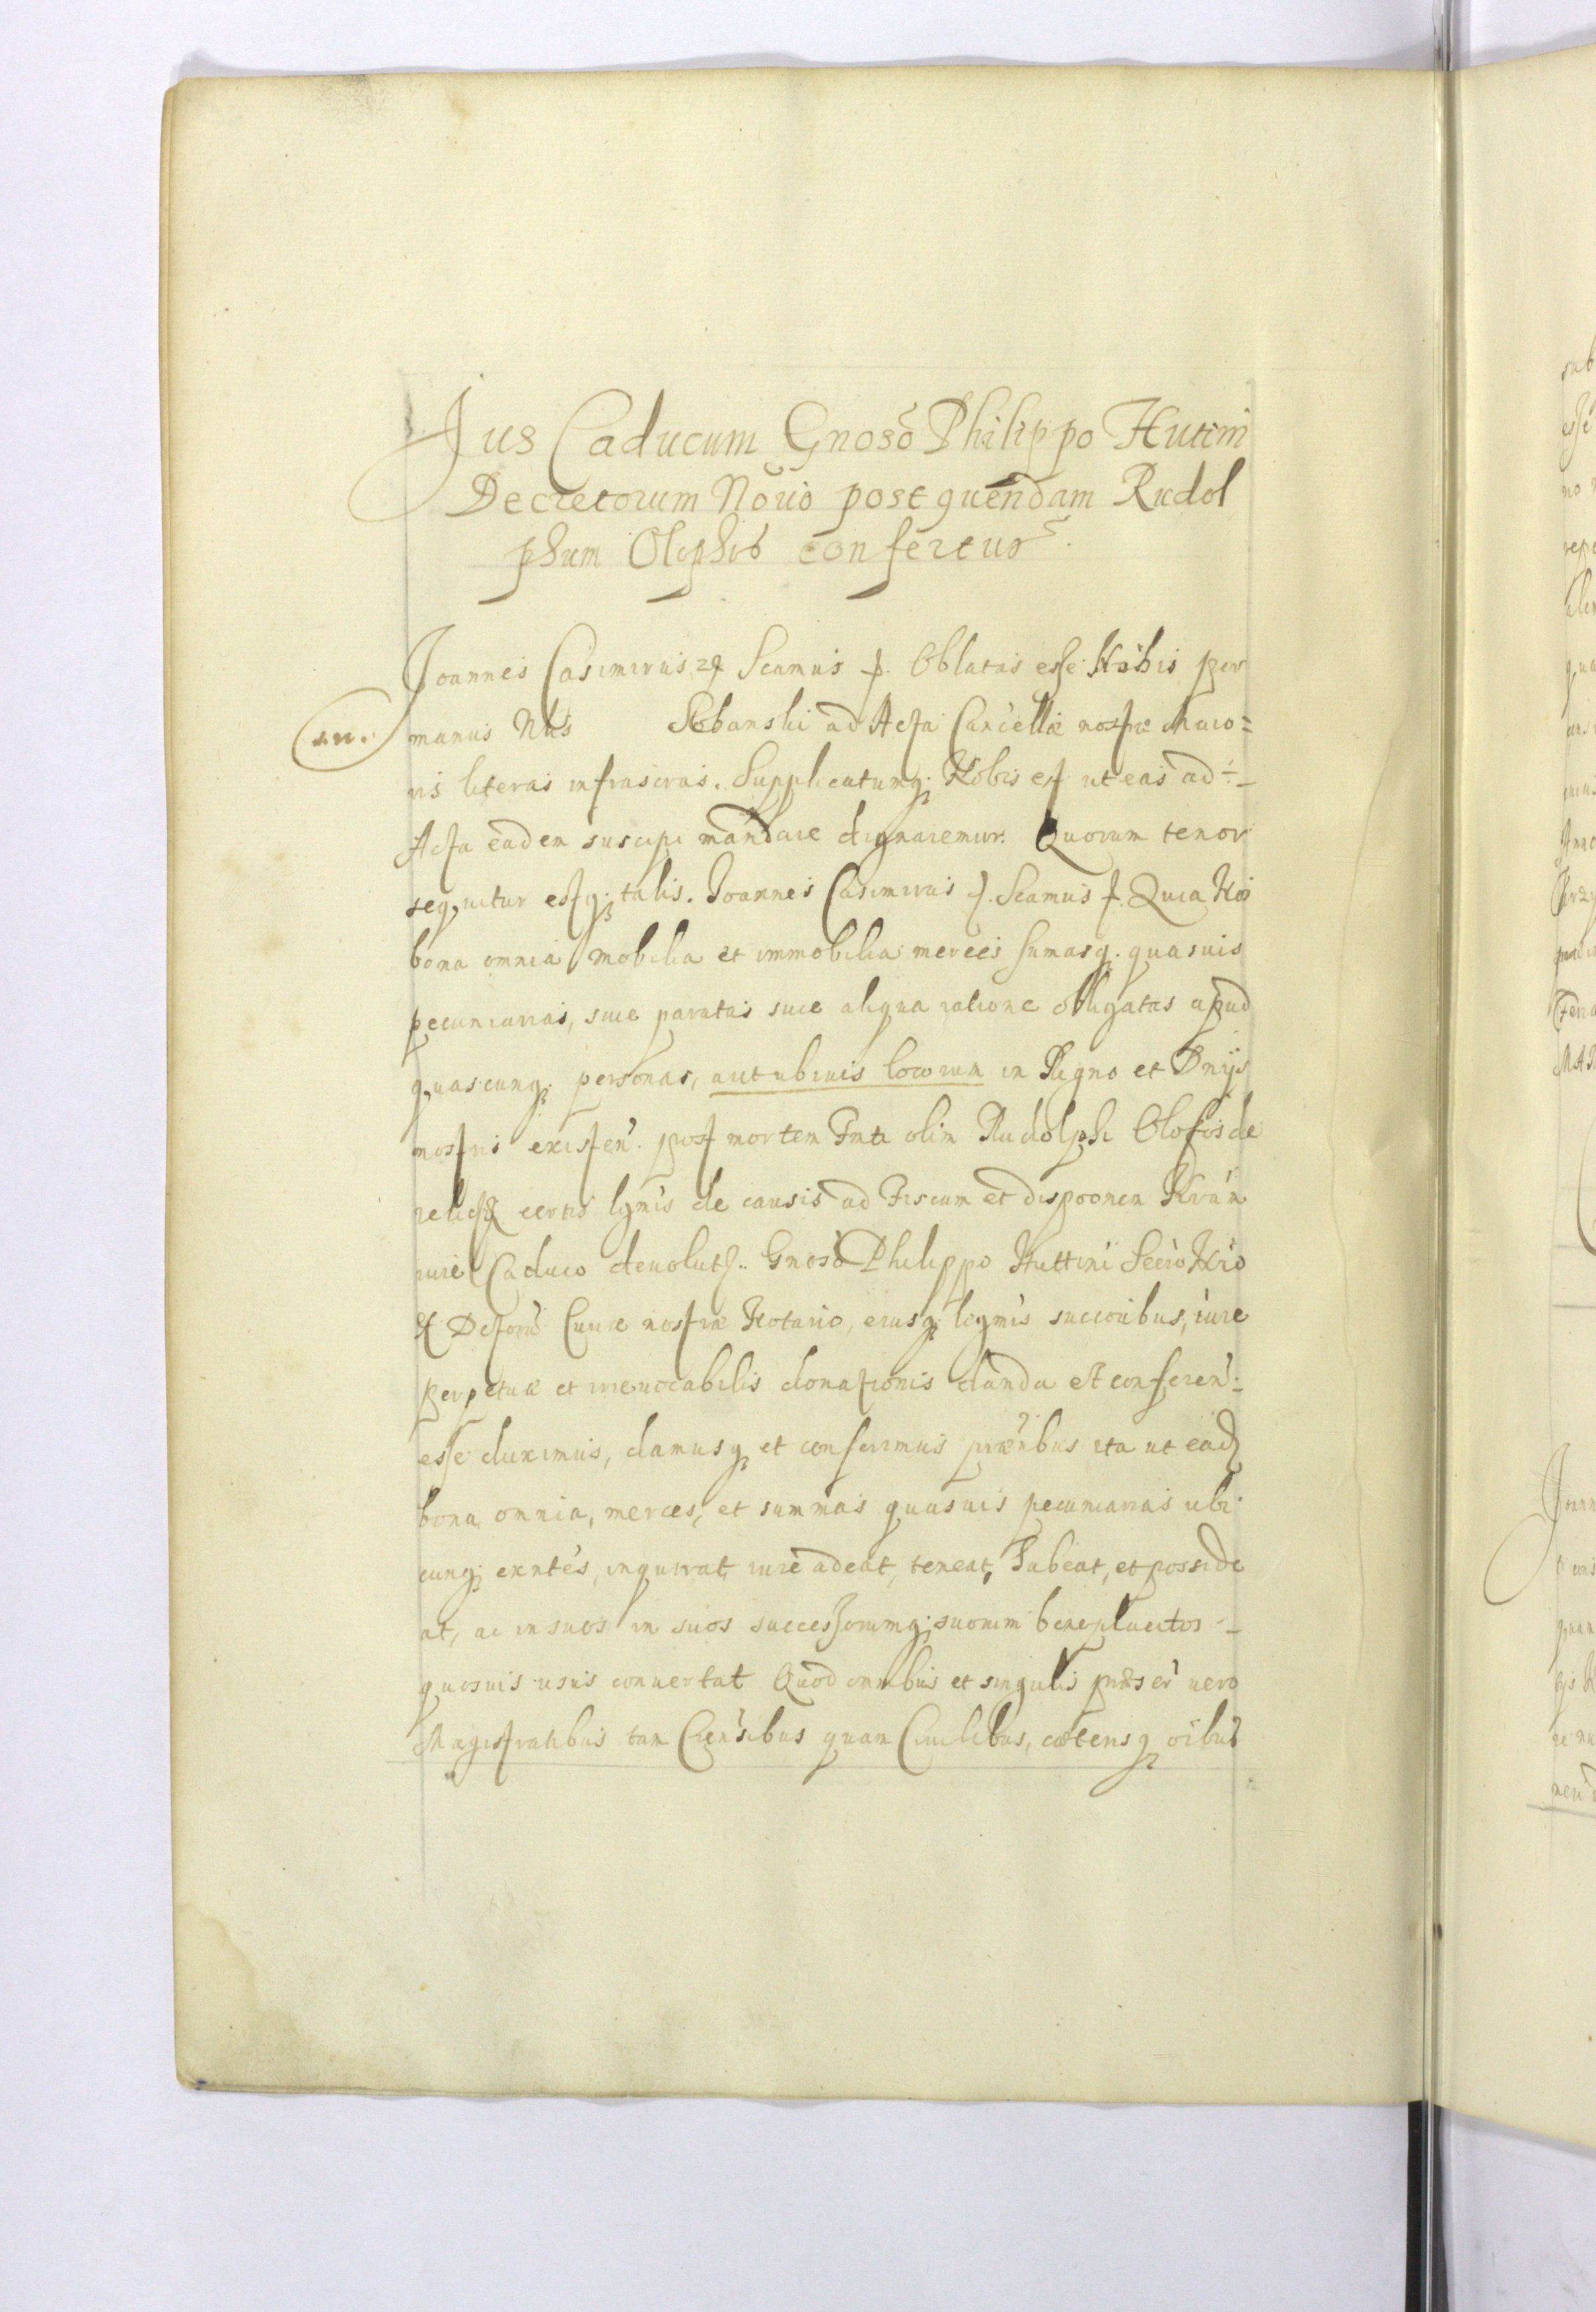 Jus Caducum Gnoso Philippo Hutini
Decretorum Norio post quendam Rudol
phum Olephis confertur.
Joannes Casimirus Scamus p. Oblatas esse Nobis per
manus Nlis Sebanski ad Acta Cancellæ nostræ Maio=
ris literas infrascras. Supplicatumq; Nobis est ut eas ad
Acta eadem suscipi mandare dignaremur. Quorum tenor
sequitur estq; talis. Joannes Casimirus Scamus Quia Nos
bona omnia mobilia et immobilia merces sumasq; quasuis
pecuniarias, siue paratas siue aliqua ratione obligatas apud
quascunq; personas, aut ubiuis locorum in Regno et Dnijs
nostris existen. post mortem olim Rudolphi Olofis de
certis lgmis de causis ad Fiscum et dispoonem
iure Caduco deuolut. Gnoso Philippo Huttini Secrio Nro
et Dctoru Curiæ nostræ Notario, eiusq; legmis succoribus, iure
perpetuæ et irreuocabilis donationis danda et conferen
esse duximus, damusq; et conferimus præntibus ita ut ead
bona omnia, merces, et summas quasuis pecuniarias ubi
cunq; exntes, inquirat, iure adeat, teneat, habeat, et posside
at, ac in suos in suos successorumq; suorum beneplacitos
quosuis usus conuertat Quod omnibus et singulis præser uero
Magistratibus tam Crensibus quam Ciuilibus, cæterisq; oibus